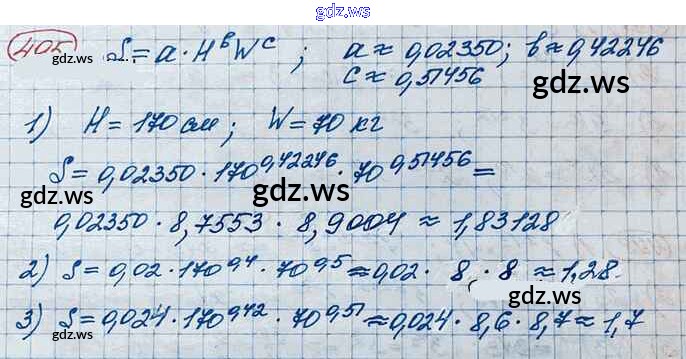 gdz.ws
405 S = a · H^b W^c ; a ≈ 0,02350; b ≈ 0,42246
gdz.ws c ≈ 0,51456
1) H = 170 см ; W = 70 кг
gdz.ws
S = 0,02350 · 170^0,42246 · 70^0,51456 =
gdz.ws
0,02350 · 8,7553 · 8,9004 ≈ 1,83128
gdz.ws
2) S = 0,02 · 170^0,4 · 70^0,5 ≈ 0,02 · 8 · 8 ≈ 1,28
gdz.ws
3) S = 0,024 · 170^0,42 · 70^0,51 ≈ 0,024 · 8,6 · 8,7 ≈ 1,7
gdz.ws